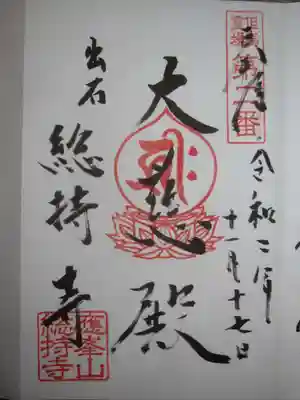 第二番
令和二年
十一月十七日
大悲殿
出石
総持寺
應峯山
總持寺